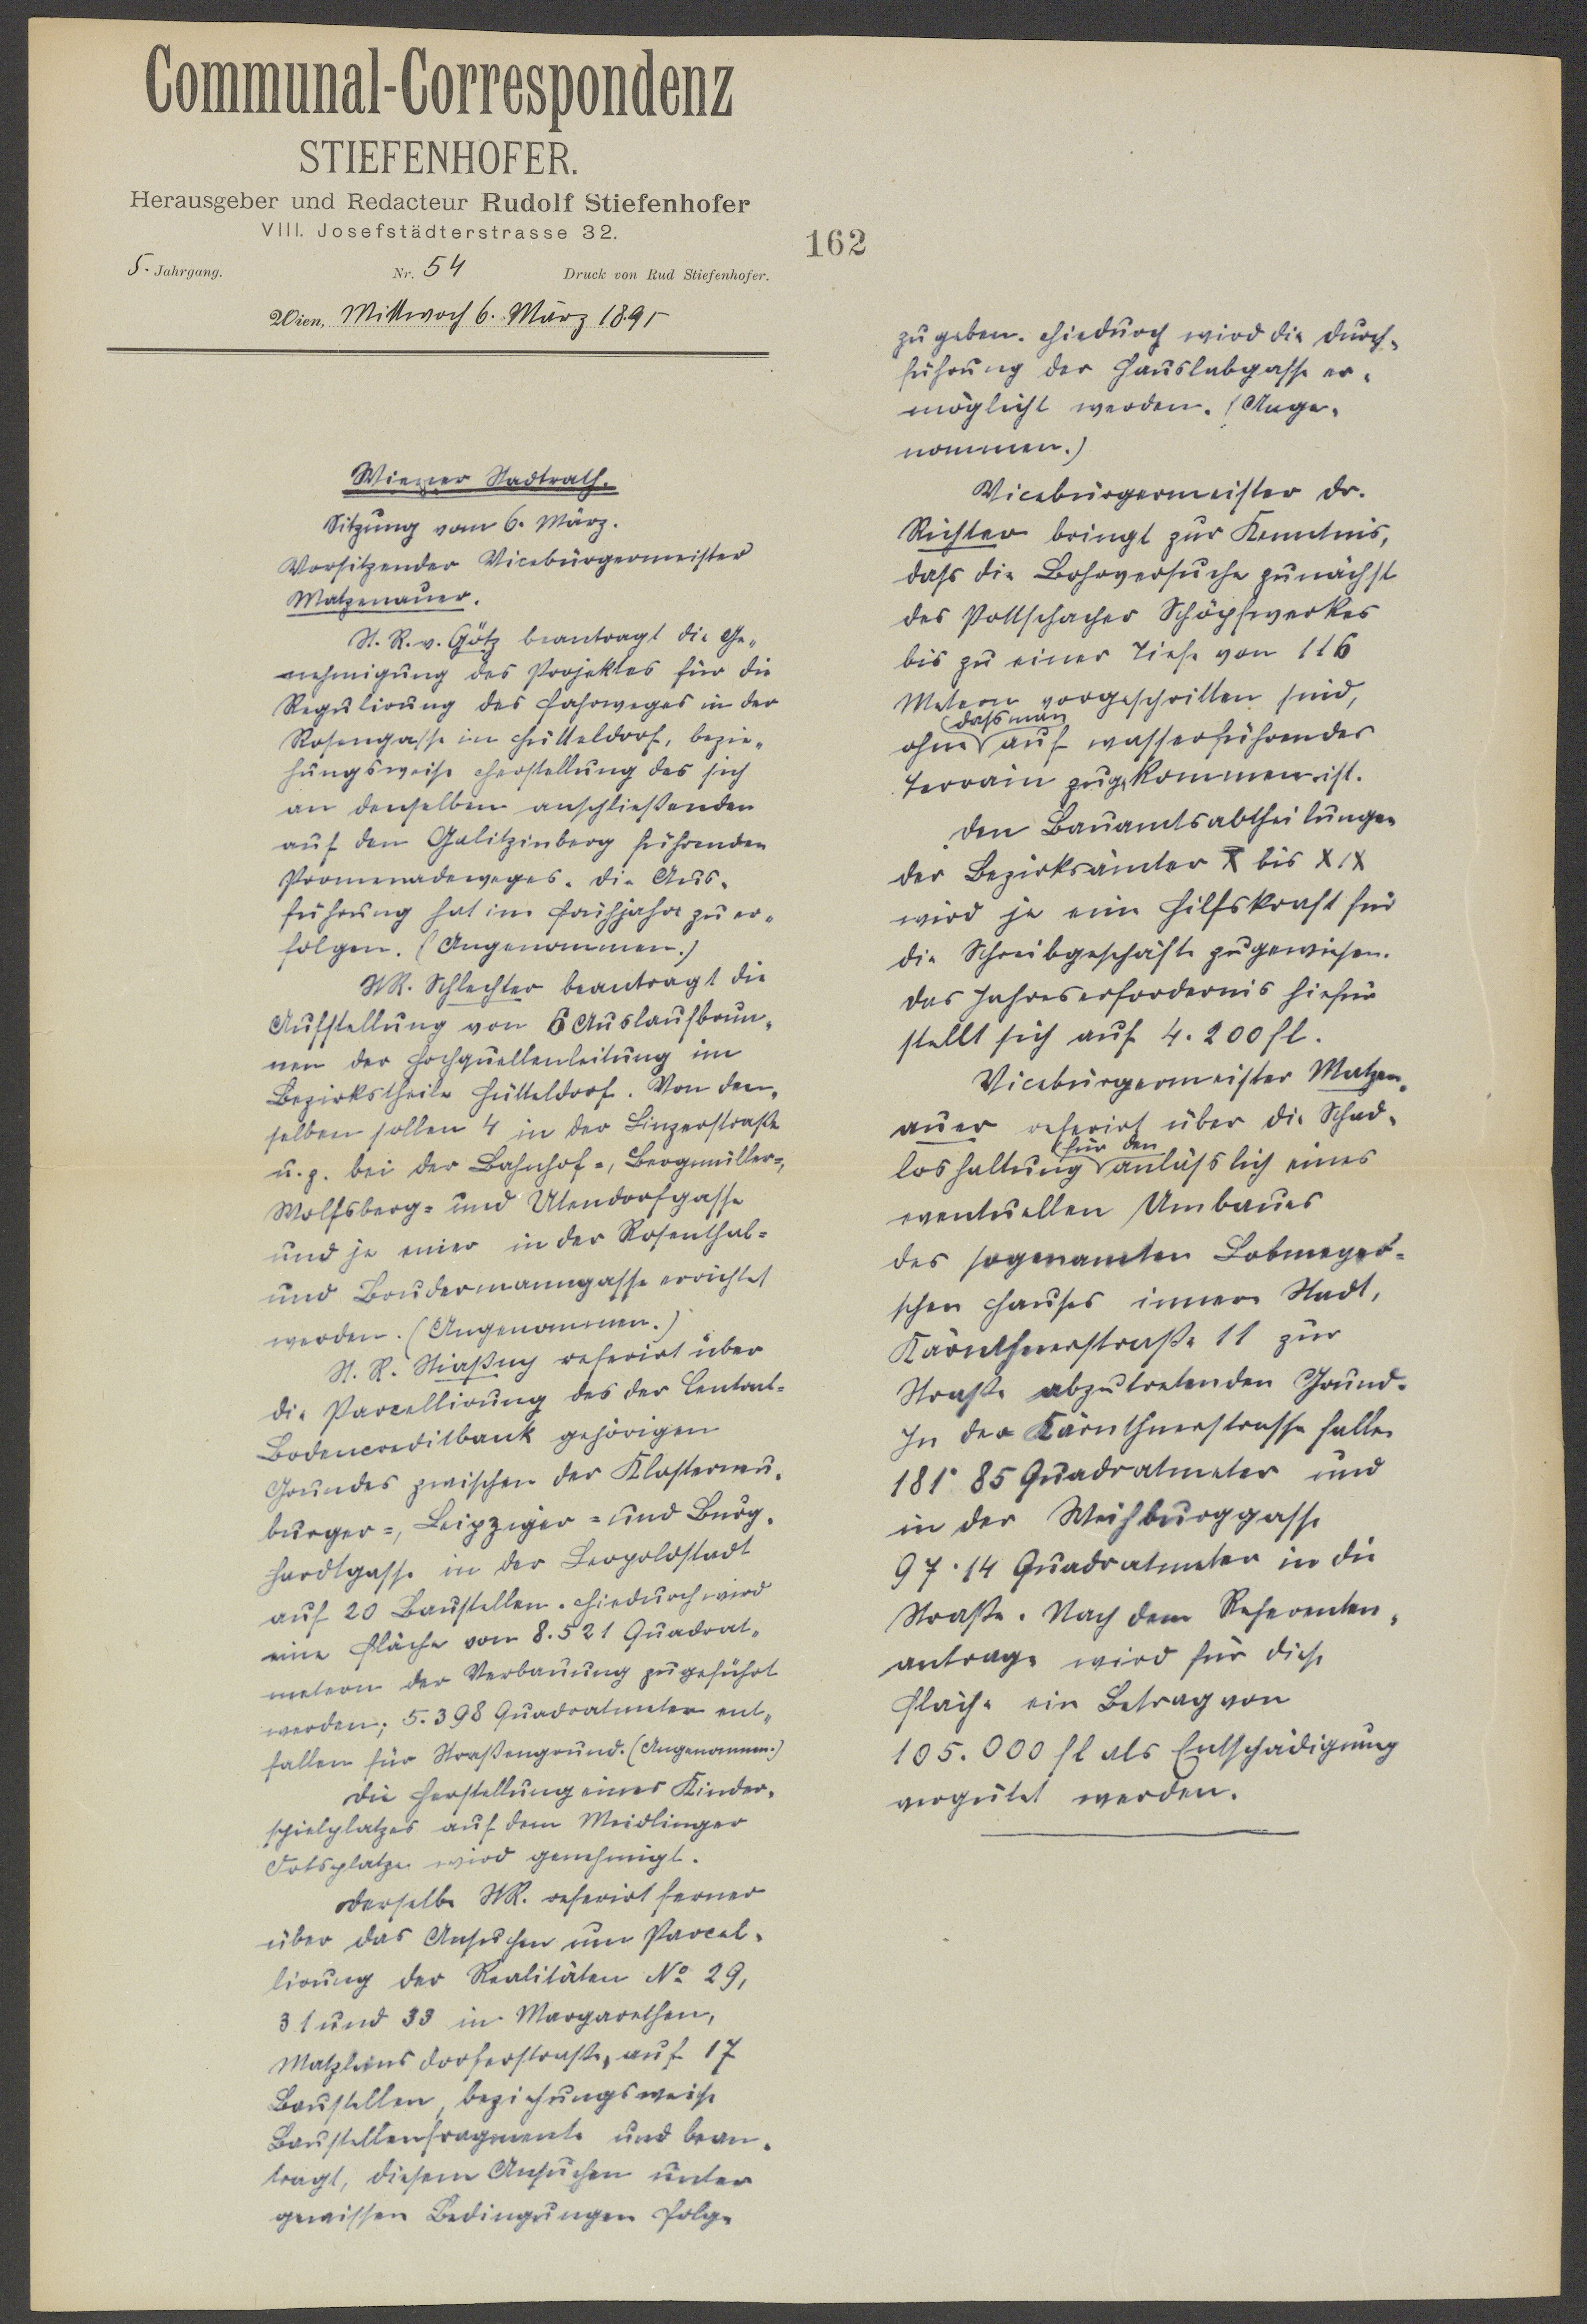 Communal-Correspondenz
STIEFENHOFER.
Herausgeber und Redacteur Rudolf Stiefenhofer
VIII. Josefstädterstrasse 32.
162
5. Jahrgang. Nr. 54 Druck von Rud Stiefenhofer.
Wien, Mittwoch 6. März 1895
Wiener Stadtrath.
Sitzung vom 6. März.
Vorsitzender Vicebürgermeister
Matzenauer.
St. R. v. Götz beantragt die Ge-
nehmigung des Projektes für die
Regulirung des Fahrweges in der
Rosengasse in Hütteldorf, bezie-
hungsweise Herstellung des sich
an denselben anschließenden
auf den Galitzinberg führenden
Promenadeweges. Die Aus-
führung hat im Frühjahr zu er-
folgen. (Angenommen.)
StR. Schlechter beantragt die
Aufstellung von 6 Auslaufbrun-
nen der Hochquellenleitung im
Bezirkstheile Hütteldorf. Von den-
selben sollen 4 in der Linzerstraße
u. z. bei der Bahnhof-, Bergmüller-,
Wolfsberg- und Utendorfgasse
und je einer in der Rosenthal-
und Brudermanngasse errichtet
werden. (Angenommen.)
St. R. Stiaßny referirt über
die Parcellirung des der Central-
Bodencreditbank gehörigen
Grundes zwischen der Klosterneu-
burger-, Leipziger- und Burg-
hardtgasse in der Leopoldstadt
auf 20 Baustellen. Hiedurch wird
eine Fläche von 8.521 Quadrat-
metern der Verbauung zugeführt
werden; 5.398 Quadratmeter ent-
fallen für Straßengrund. (Angenommen.)
Die Herstellung eines Kinder-
spielplatzes auf dem Meidlinger
Ortsplatze wird genehmigt.
Derselbe StR. referirt ferner
über das Ansuchen um Parcel-
lirung der Realitäten No 29,
31 und 33 in Margarethen,
Matzleinsdorferstraße, auf 17
Baustellen, beziehungsweise
Baustellenfragmente und bean-
tragt, diesem Ansuchen unter
gewissen Bedingungen Folge
zu geben. Hiedurch wird die Durch-
führung der Hauslabgasse er-
möglicht werden. (Ange-
nommen.)
Vicebürgermeister Dr.
Richter bringt zur Kenntnis,
dass die Bohrversuche zunächst
des Pottschacher Schöpfwerkes
bis zu einer Tiefe von 116
Metern vorgeschritten sind,
dass man
ohne auf wasserführendes
Terrain gekommen ist.
Den Bauamtsabtheilungen
der Bezirksämter X bis XIX
wird je eine Hilfskraft für
die Schreibgeschäfte zugewiesen.
Das Jahreserfordernis hiefür
stellt sich auf 4.200 fl.
Vicebürgermeister Matzen-
auer referirt über die Schad-
für den
loshaltung anläßlich eines
eventuellen Umbaues
des sogenannten Lobmeyer-
schen Hauses innere Stadt,
Kärnthnerstraße 11 zur
Straße abzutretenden Grund.
In der Kärnthnerstrasse fallen
181·85 Quadratmeter und
in der Weihburggasse
97·14 Quadratmeter in die
Straße. Nach dem Referenten-
antrage wird für diese
Fläche ein Betrag von
105.000 fl als Entschädigung
vergütet werden.